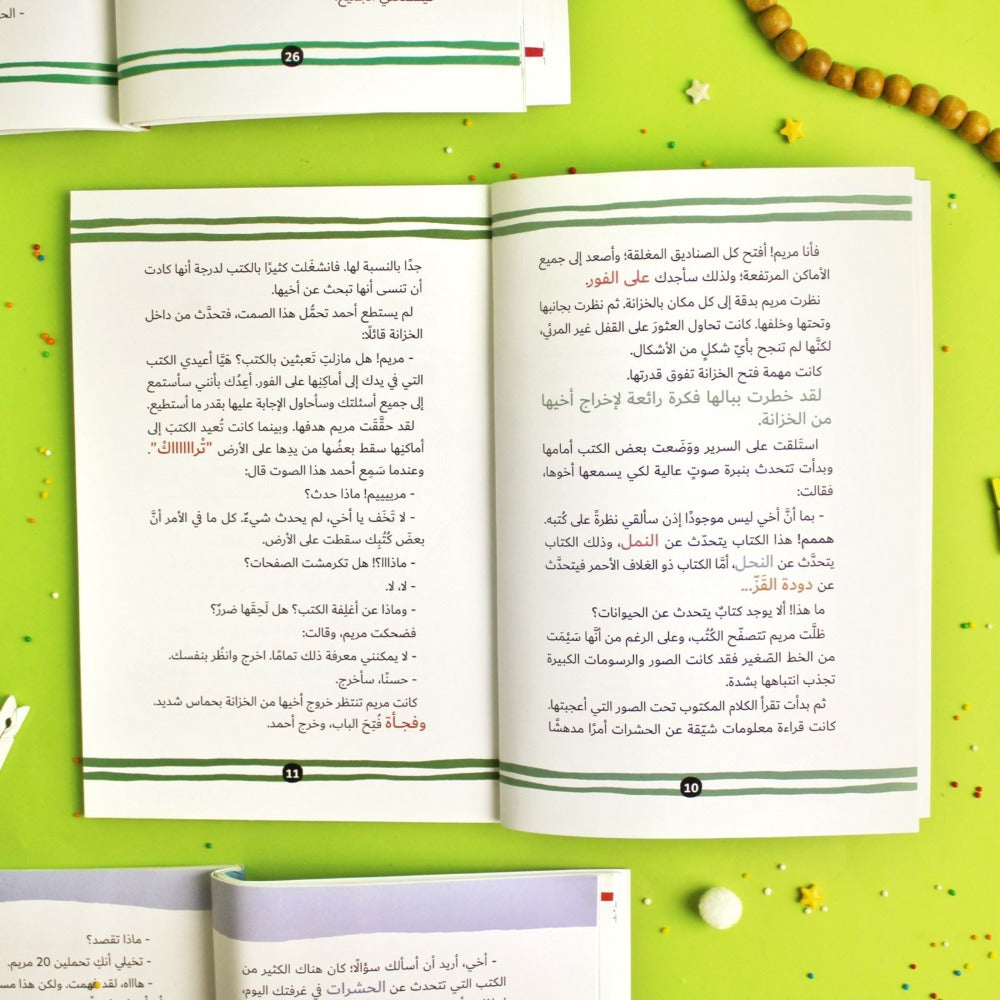 - الح
26
فأنا مريم! أفتح كل الصناديق المغلقة؛ وأصعد إلى جميع
الأماكن المرتفعة؛ ولذلك سأجدك على الفور.
نظرت مريم بدقة إلى كل مكان بالخزانة. ثم نظرت بجانبها
وتحتها وخلفها. كانت تحاول العثورَ على القفل غير المرئي،
لكنَّها لم تنجح بأيّ شكلٍ من الأشكال.
كانت مهمة فتح الخزانة تفوق قدرتها.
لقد خطرت ببالها فكرة رائعة لإخراج أخيها
من الخزانة.
استَلقت على السرير ووَضَعت بعض الكتب أمامها
وبدأت تتحدث بنبرة صوتٍ عالية لكي يسمعها أخوها،
فقالت:
- بما أنَّ أخي ليس موجودًا إذن سألقي نظرةً على كُتبه.
هممم! هذا الكتاب يتحدّث عن النمل، وذلك الكتاب
يتحدَّث عن النحل، أمَّا الكتاب ذو الغلاف الأحمر فيتحدَّث
عن دودة القَزّ...
ما هذا! ألا يوجد كتابٌ يتحدث عن الحيوانات؟
ظلَّت مريم تتصفّح الكُتُب، وعلى الرغم من أنَّها سَئِمَت
من الخط الصّغير فقد كانت الصور والرسومات الكبيرة
تجذب انتباهها بشدة.
ثم بدأت تقرأ الكلام المكتوب تحت الصور التي أعجبتها.
كانت قراءة معلومات شيّقة عن الحشرات أمرًا مدهشًا
10
جدًا بالنسبة لها. فانشغَلت كثيرًا بالكتب لدرجة أنها كادت
أن تنسى أنها تبحث عن أخيها.
لم يستطع أحمد تحمُّل هذا الصمت، فتحدَّث من داخل
الخزانة قائلًا:
- مريم! هل مازلتِ تَعبثين بالكتب؟ هَيَّا أعيدي الكتب
التي في يدك إلى أماكِنِها على الفور. أعِدُك بأنني سأستمع
إلى جميع أسئلتك وسأحاول الإجابة عليها بقدر ما أستطيع.
لقد حقَّقَت مريم هدفها. وبينما كانت تُعيد الكتبَ إلى
أماكنِها سقط بعضُها من يدِها على الأرض "تْرااااااكْ".
وعندما سَمِع أحمد هذا الصوت قال:
- مريييييم! ماذا حدث؟
- لا تَخَف يا أخي، لم يحدث شيءٌ. كل ما في الأمر أنَّ
بعضَ كُتُبِك سقطت على الأرض.
- ماذااا؟! هل تكرمشت الصفحات؟
- لا، لا.
- وماذا عن أغلِفة الكتب؟ هل لَحِقَها ضررٌ؟
فضحكت مريم، وقالت:
- لا يمكنني معرفة ذلك تمامًا. اخرج وانظُر بنفسك.
- حسنًا، سأخرج.
كانت مريم تنتظر خروج أخيها من الخزانة بحماس شديد.
وفجـأة فُتِحَ الباب، وخرج أحمد.
11
- أخي، أريد أن أسألك سؤالًا؛ كان هناك الكثير من
الكتب التي تتحدث عن الحشرات في غرفتك اليوم،
- ماذا تقصد؟
- تخيلي أنكِ تحملين 20 مريم.
- هاااه، لقد فهمت. ولكن هذا